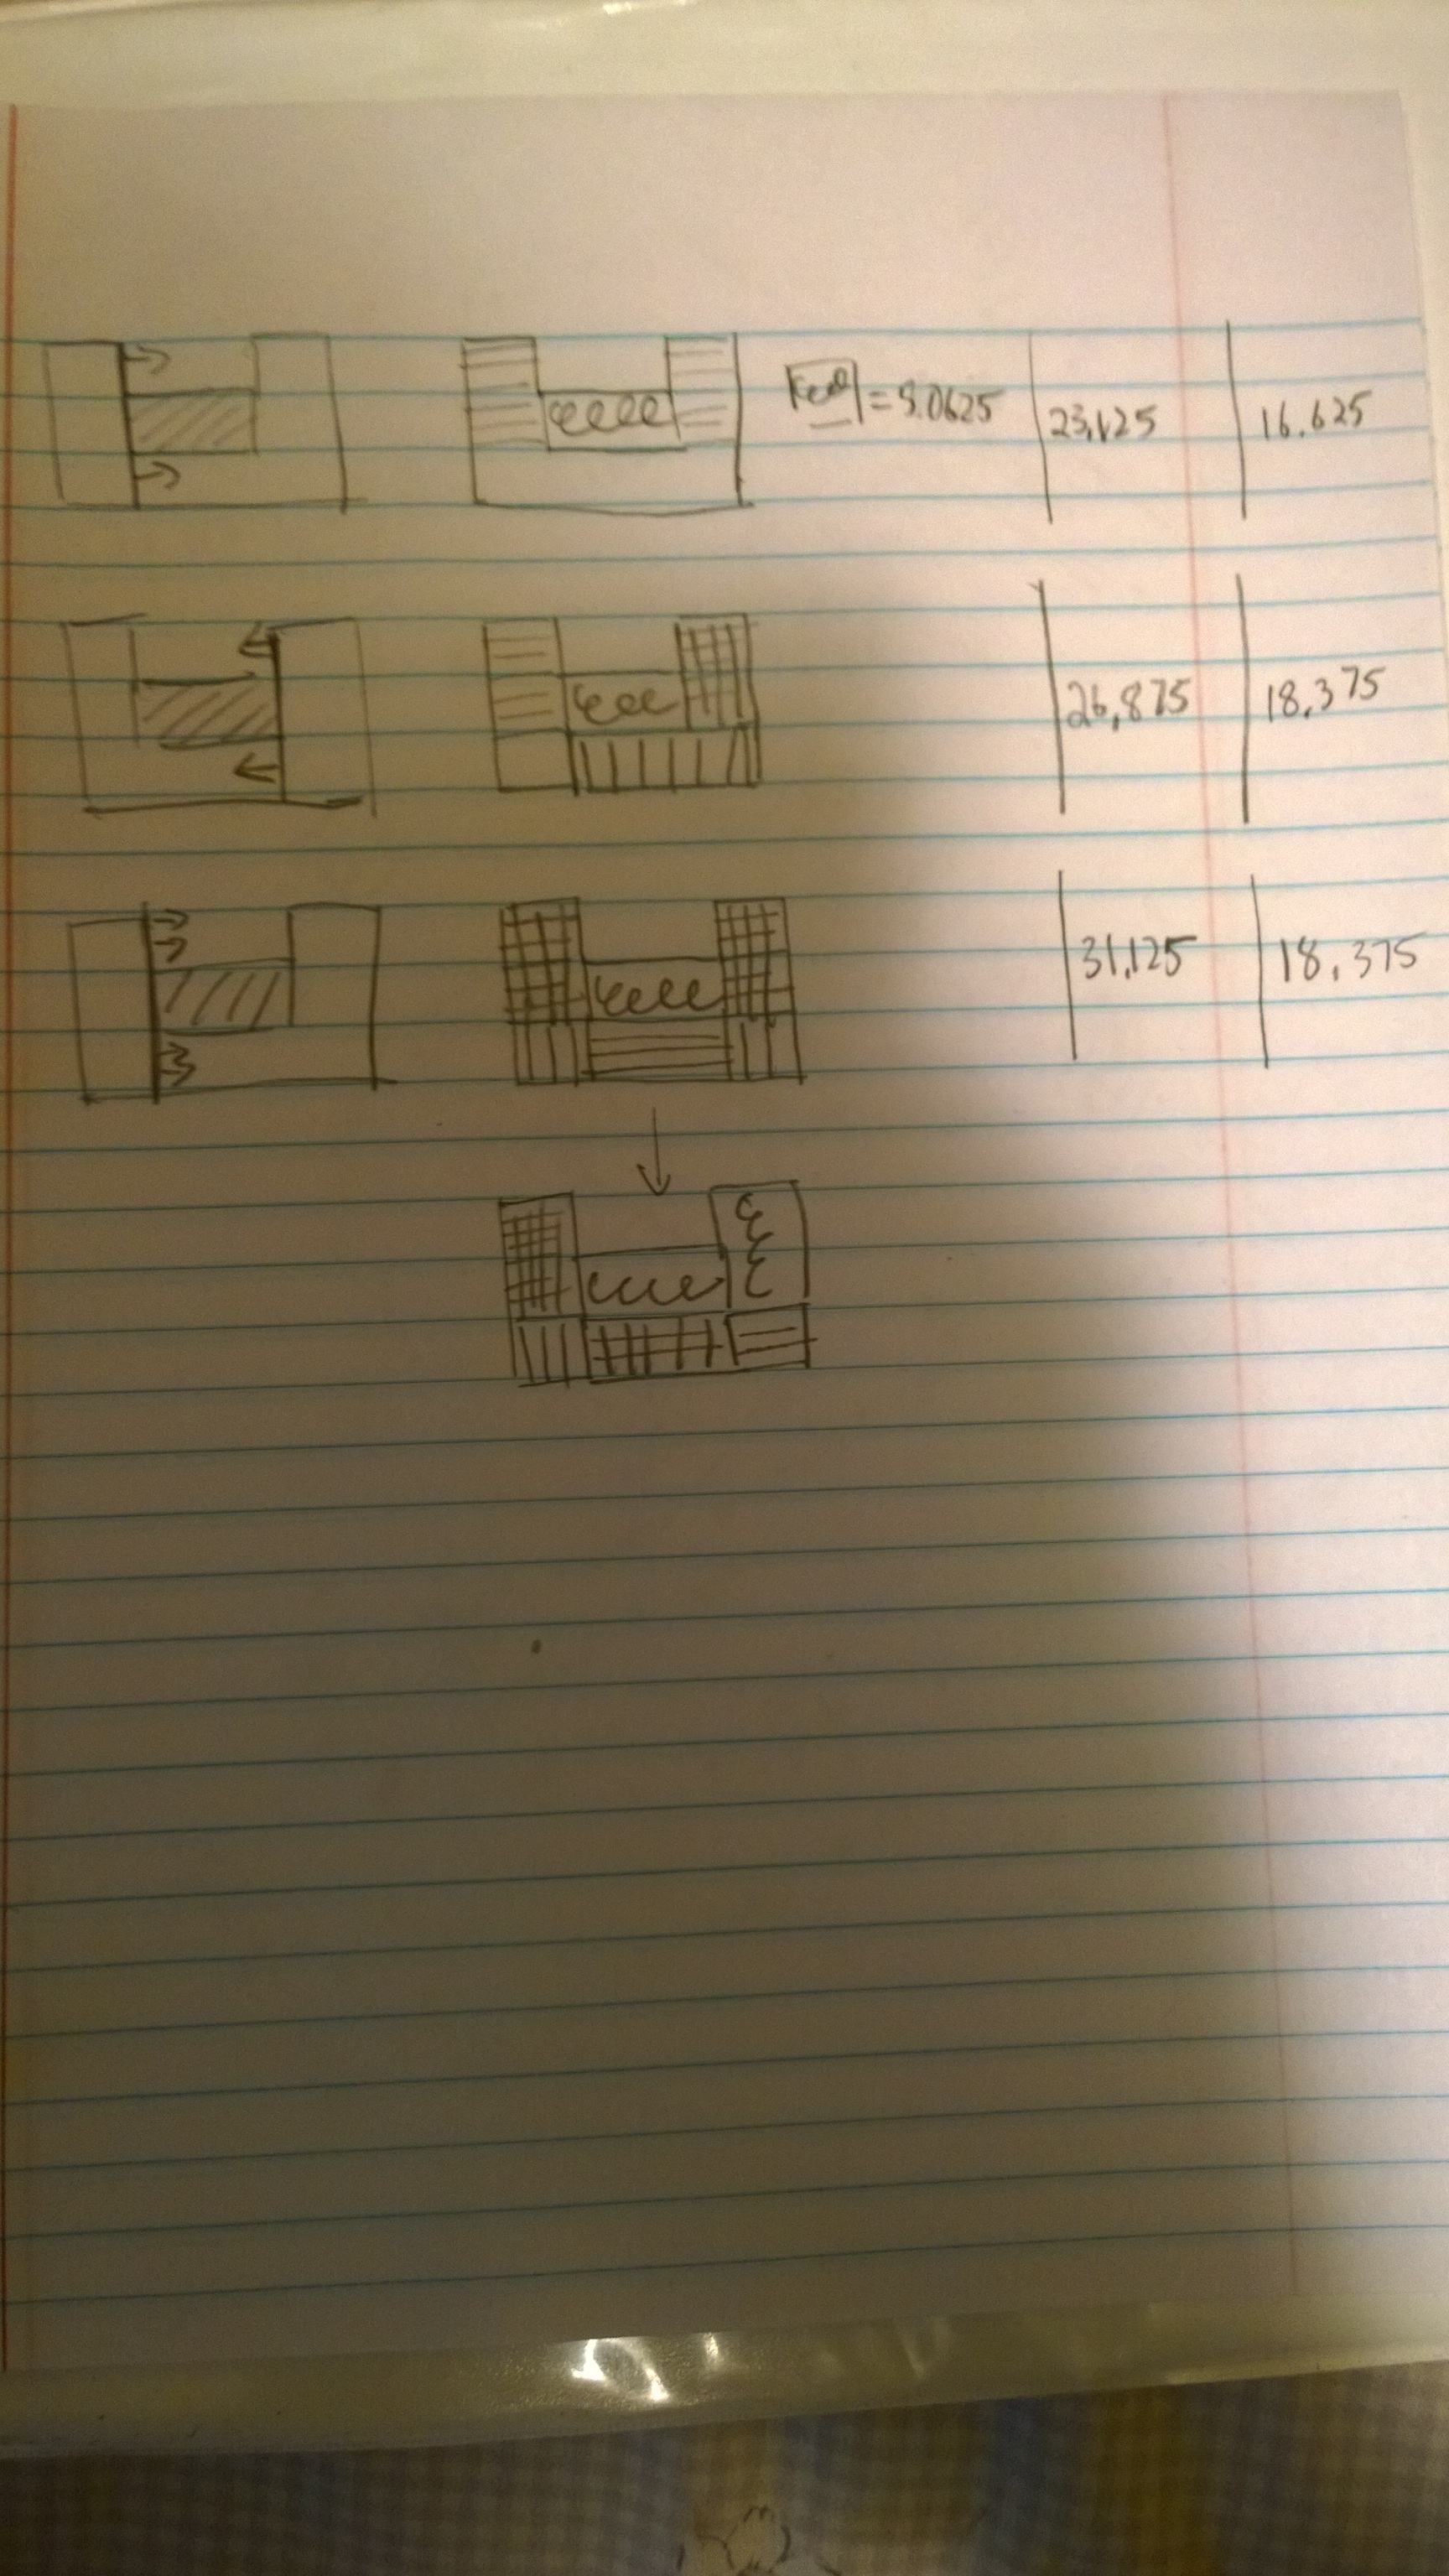 = 8.0625 23.125 16.625
26.875 18.375
31.125 18.375